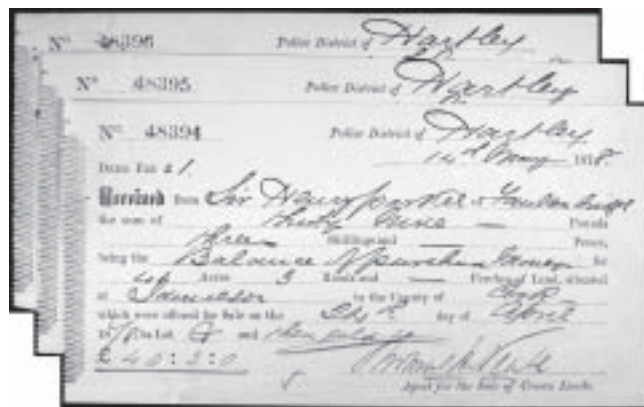 Nº 48396 Police District of Hartley
Nº 48395 Police District of Hartley
Nº 48394 Police District of Hartley
14th May 1878.
Deed Fee £1.
Received from Sir Henry Parkes Faulconbridge
the sum of thirty nine — Pounds
three Shillings and — Pence,
being the Balance of purchase Money for
46 Acres 3 Roods and — Perches of Land, situated
at in the County of Cook
which were offered for Sale on the 24th day of April
as Lot G and
£ 40 : 3 : 0
Agent for the Sale of Crown Lands.